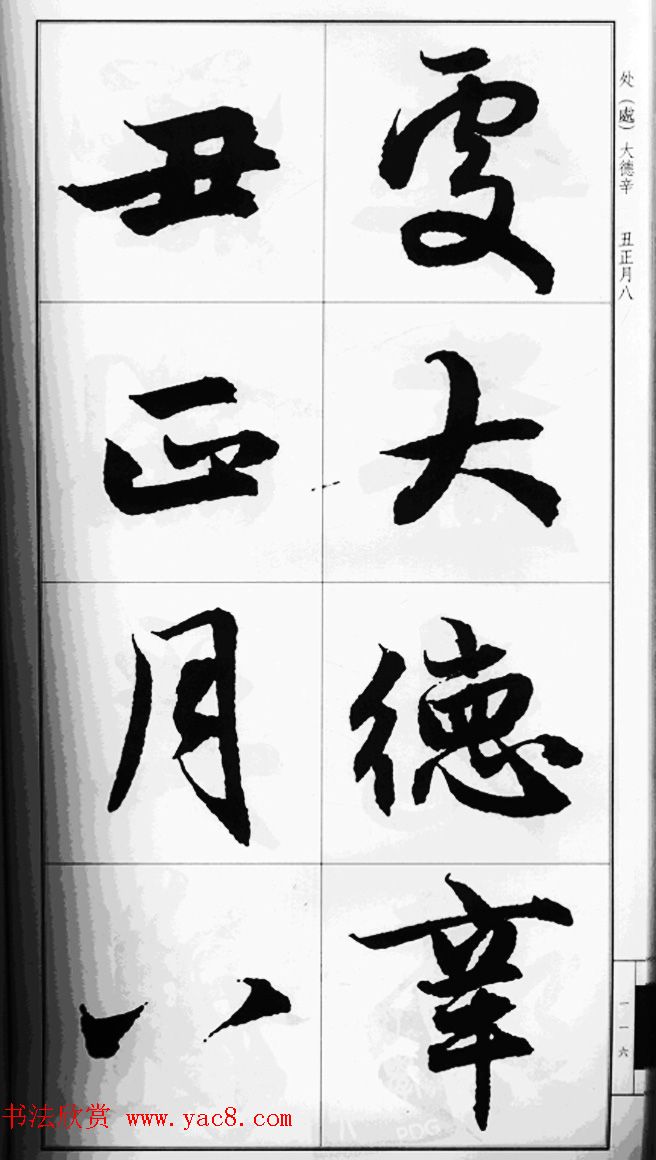 处（處）大德辛　丑正月八
處大德辛
丑正月八
一一六
书法欣赏 www.yac8.com